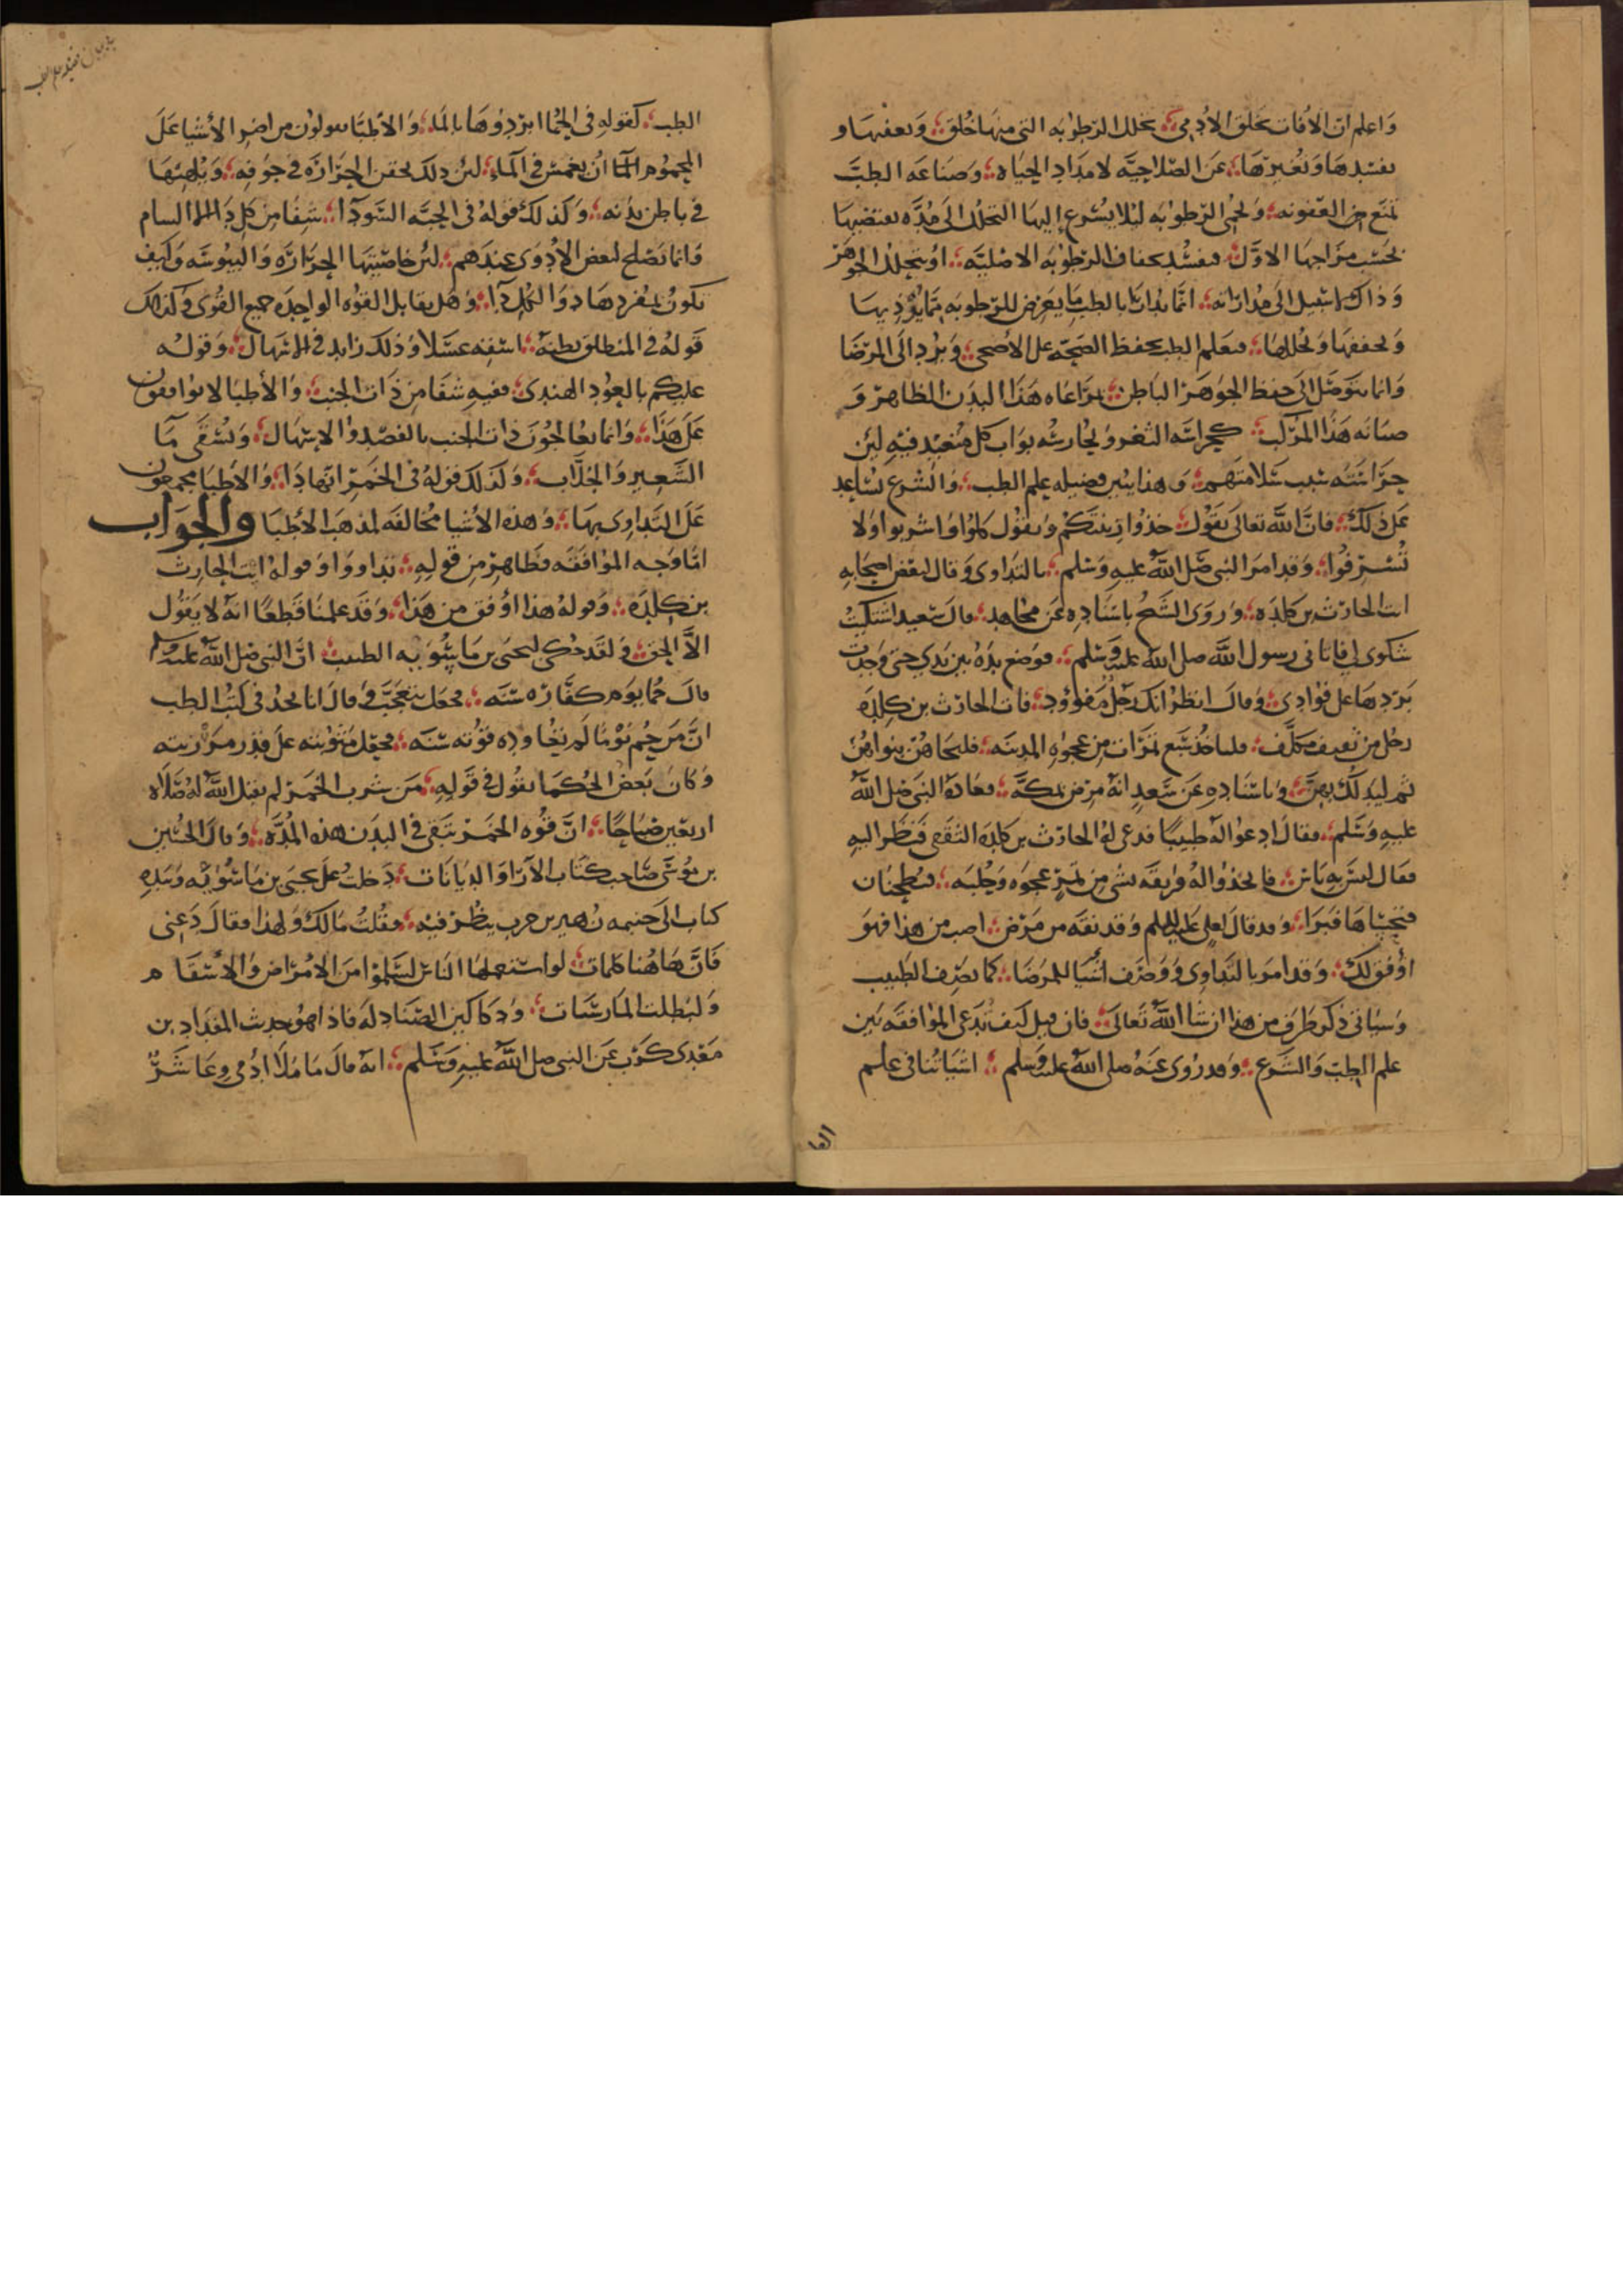 واعلم ان الافات تخلق الادمي؛ بتحلل الرطوبه التي منها خلق؛ وتعفنها و
تفسدها وتغيرها؛ عن الصلاحيه لامداد الحياه؛ وصناعه الطب
تمنع من العفونه؛ وتحمى الرطوبه ليلا يسرع اليها التحلل الى مده تقتضيها
بحسب مزاجها الاول؛ فتفسد بجفاف الرطوبه الاصليه؛ او بتحلل الجوهر
وذاك لا سبيل الى مداراته؛ انما يدارا بالطب ما يعرض للرطوبه مما يؤذيها
ويجففها ويحللها؛ فتعلم الطب يحفظ الصحه على الاصحى؛ ويرد الى المرضا
وانما يتوصل الى حفظ الجوهر الباطن؛ بمراعاه هذا البدن الظاهر و
صيانه هذا المركب؛ كحراسه الثغر ويحارسه بواب كل متعبد فيه لين
حراسته سبب سلامتهم؛ وهذا يبين فضيله علم الطب؛ والشرع يساعد
على ذلك؛ فان الله تعالى يقول؛ خذوا زينتكم ويقول كلوا واشربوا ولا
تسرفوا؛ وقد امر النبى صلى الله عليه وسلم؛ بالتداوى وقال لبعض اصحابه
ات الحارث بن كلده؛ وروى الشيخ باسناده عن مجاهد؛ قال سعيد اشتكيت
شكوى لى فاتانى رسول الله صلى الله عليه وسلم؛ فوضع يده بين يدي حتى وجدت
بردها على فوادى؛ وقال انظر انك رجل مفؤود؛ فات الحارث بن كلده
رجل من ثقيف متكلف؛ فلياخذ سبع تمرات من عجوه المدينه؛ فليجاهن بنواهن
ثم ليدلك بهن؛ وباسناده عن سعد انه مرض بمكه؛ فعاده النبى صلى الله
عليه وسلم؛ فقال ادعوا له طبيبا فدعى له الحارث بن كلده الثقفى فنظر اليه
فقال ليس به باس؛ فاتخذوا له فريقه بشى من تمر عجوه وحلبه؛ فيطبخان
فتحساها فبرا؛ وقد قال لعلى عليه السلم وقد نقه من مرض؛ اصب من هذا فهو
اوفق لك؛ وقد امر بالتداوى ووصف اشيا للمرضا؛ كما يصف الطبيب
وسياتى ذكر طرف من هذا ان شا الله تعالى؛ فان قيل كيف تدعى الموافقه بين
علم الطب والشرع؛ وقد روى عنه صلى الله عليه وسلم؛ اشيا تنافى علم
الطب؛ كقوله فى الحما ابردوها بالما؛ والاطبا يقولون من اضر الاشيا على
المحموم ان يغمس فى الما؛ لين ذلك يحقن الحراره فى جوفه؛ ويلهبها
فى باطن بدنه؛ وكذلك قوله فى الحبه السودا؛ شفا من كل دا الا السام
وانما تصلح لبعض الادوى عندهم؛ لين خاصيتها الحراره واليبوسه وكيف
تكون بمفردها دوا لكل دا؛ وهل يقابل القوه الواحده جميع القوى وكذلك
قوله فى المنطلق بطنه؛ اسقه عسلا وذلك زايد فى الاسهال؛ وقوله
عليكم بالعود الهندى؛ ففيه شفا من ذات الجنب؛ والاطبا لا يوافقون
على هذا؛ وانما يعالجون ذات الجنب بالفصد والاسهال؛ ويسقى ما
الشعير والجلاب؛ وكذلك قوله فى الخمر انها دا؛ والاطبا مجمعون
على التداوى بها؛ وهذه الاشيا مخالفه لمذهب الاطبا والجواب
اما وجه الموافقه فظاهر من قوله؛ تداووا وقوله ات الحارث
بن كلده؛ وقوله هذا اوفق من هذا؛ وقد علمنا قطعا انه لا يقول
الا الحق؛ ولقد حكى ليحيى بن ماسويه الطبيب؛ ان النبى صلى الله عليه وسلم
قال حما يوم كفاره سنه؛ فجعل يتعجب وقال انا نجد فى كتب الطب
ان من حم يوما لم تعاوده قوته سنه؛ فجعل مثوبته على قدر مرزيته
وكان بعض الحكما يقول فى قوله؛ من شرب الخمر لم يقبل الله له صلاه
اربعين صباحا؛ ان قوه الخمر تبقى فى البدن هذه المده؛ وقال الحسين
بن موسى صاحب كتاب الارا والديانات؛ دخلت على يحيى بن ماسويه وبيده
كتاب الى خيثمه زهير بن حرب ينظر فيه؛ فقلت مالك ولهذا فقال دعنى
فان هاهنا كلمات؛ لو استعملها الناس لسلموا من الامراض والاسقام
ولبطلت المارستانات؛ ودكاكين الصنادله فاذا هو حديث المقداد بن
معدى كرب عن النبى صلى الله عليه وسلم؛ انه قال ما ملا ادمى وعا شر